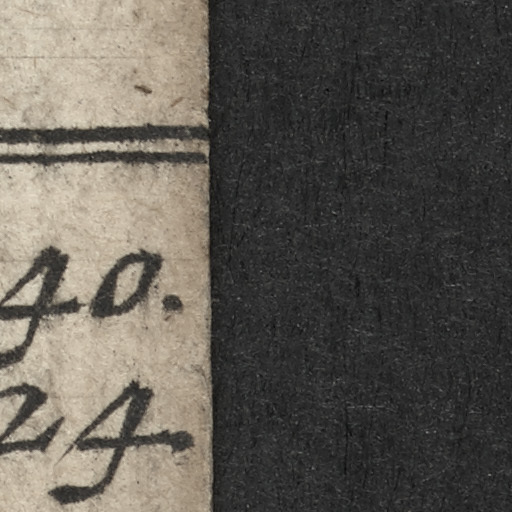 40.
24.